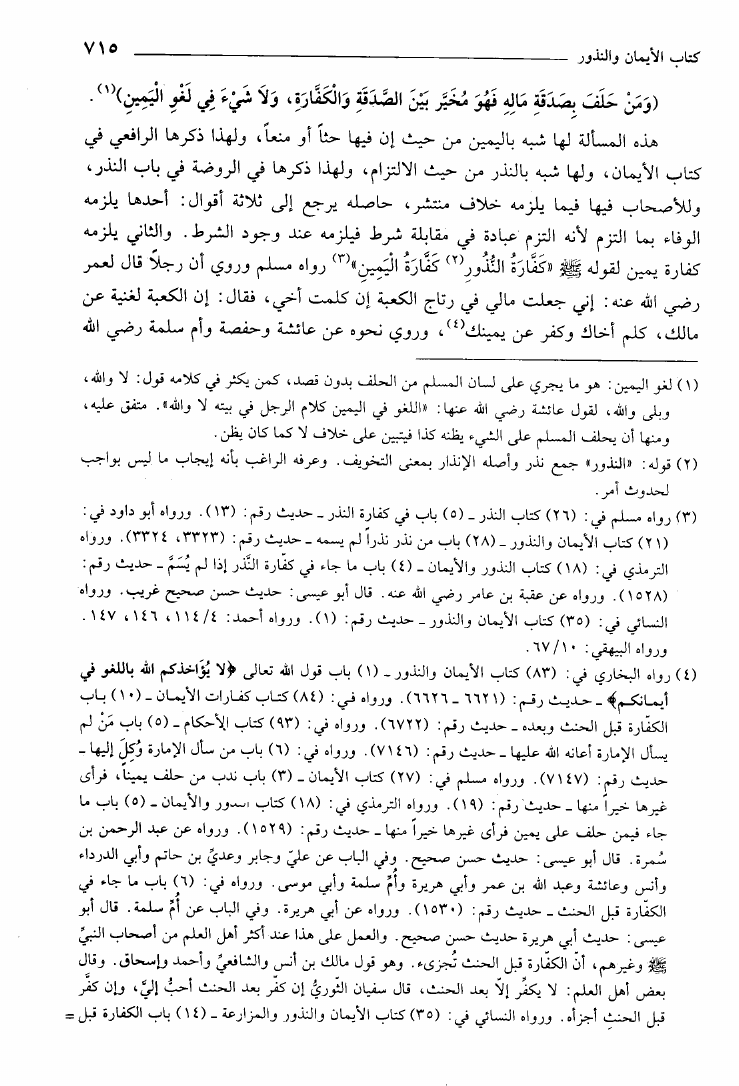 كتاب الأيمان والنذور ــــــــــــــــــــ ٧١٥
(وَمَنْ حَلَفَ بِصَدَقَةِ مَالِهِ فَهُوَ مُخَيَّر بَيْنَ الصَّدَقَةِ وَالْكَفَّارَةِ، وَلاَ شَيْءَ فِي لَغْوِ الْيَمِينِ)(١).
هذه المسألة لها شبه باليمين من حيث إن فيها حثاً أو منعاً، ولهذا ذكرها الرافعي في
كتاب الأيمان، ولها شبه بالنذر من حيث الالتزام، ولهذا ذكرها في الروضة في باب النذر،
وللأصحاب فيها فيما يلزمه خلاف منتشر، حاصله يرجع إلى ثلاثة أقوال: أحدها يلزمه
الوفاء بما التزم لأنه التزم عبادة في مقابلة شرط فيلزمه عند وجود الشرط. والثاني يلزمه
كفارة يمين لقوله ﷺ «كَفَّارَةُ النُّذُورِ(٢) كَفَّارَةُ الْيَمِينِ»(٣) رواه مسلم وروي أن رجلاً قال لعمر
رضي الله عنه: إني جعلت مالي في رتاج الكعبة إن كلمت أخي، فقال: إن الكعبة لغنية عن
مالك، كلم أخاك وكفر عن يمينك(٤)، وروي نحوه عن عائشة وحفصة وأم سلمة رضي الله
(١) لغو اليمين: هو ما يجري على لسان المسلم من الحلف بدون قصد، كمن يكثر في كلامه قول: لا والله،
وبلى والله، لقول عائشة رضي الله عنها: «اللغو في اليمين كلام الرجل في بيته لا والله». متفق عليه،
ومنها أن يحلف المسلم على الشيء يظنه كذا فيتبين على خلاف لا كما كان يظن.
(٢) قوله: «النذور» جمع نذر وأصله الإنذار بمعنى التخويف. وعرفه الراغب بأنه إيجاب ما ليس بواجب
لحدوث أمر.
(٣) رواه مسلم في: (٢٦) كتاب النذر ــ (٥) باب في كفارة النذر ــ حديث رقم: (١٣). ورواه أبو داود في:
(٢١) كتاب الأيمان والنذور ــ (٢٨) باب من نذر نذراً لم يسمه ــ حديث رقم: (٣٣٢٣، ٣٣٢٤). ورواه
الترمذي في: (١٨) كتاب النذور والأيمان ــ (٤) باب ما جاء في كفّارة النَّذر إذا لم يُسَمَّ ــ حديث رقم:
(١٥٢٨). ورواه عن عقبة بن عامر رضي الله عنه. قال أبو عيسى: حديث حسن صحيح غريب. ورواه
النسائي في: (٣٥) كتاب الأيمان والنذور ــ حديث رقم: (١). ورواه أحمد: ٤/ ١١٤، ١٤٦، ١٤٧.
ورواه البيهقي: ١٠/ ٦٧.
(٤) رواه البخاري في: (٨٣) كتاب الأيمان والنذور ــ (١) باب قول الله تعالى ﴿لا يُؤَاخذكم الله باللغو في
أيمانكم﴾ ــ حديث رقم: (٦٦٢١ ــ ٦٦٢٦). ورواه في: (٨٤) كتاب كفارات الأيمان ــ (١٠) باب
الكفّارة قبل الحنث وبعده ــ حديث رقم: (٦٧٢٢). ورواه في: (٩٣) كتاب الأحكام ــ (٥) باب مَنْ لم
يسأل الإمارة أعانه الله عليها ــ حديث رقم: (٧١٤٦). ورواه في: (٦) باب من سأل الإمارة وُكِلَ إليها ــ
حديث رقم: (٧١٤٧). ورواه مسلم في: (٢٧) كتاب الأيمان ــ (٣) باب ندب من حلف يميناً، فرأى
غيرها خيراً منها ــ حديث رقم: (١٩). ورواه الترمذي في: (١٨) كتاب النذور والأيمان ــ (٥) باب ما
جاء فيمن حلف على يمين فرأى غيرها خيراً منها ــ حديث رقم: (١٥٢٩). ورواه عن عبد الرحمن بن
سُمرة. قال أبو عيسى: حديث حسن صحيح. وفي الباب عن عليّ وجابر وعديِّ بن حاتم وأبي الدرداء
وأنس وعائشة وعبد الله بن عمر وأبي هريرة وأُمِّ سلمة وأبي موسى. ورواه في: (٦) باب ما جاء في
الكفّارة قبل الحنث ــ حديث رقم: (١٥٣٠). ورواه عن أبي هريرة. وفي الباب عن أُمِّ سلمة. قال أبو
عيسى: حديث أبي هريرة حديث حسن صحيح. والعمل على هذا عند أكثر أهل العلم من أصحاب النبيِّ
ﷺ وغيرهم، أنّ الكفّارة قبل الحنث تُجزىء. وهو قول مالك بن أنس والشافعيِّ وأحمد وإسحاق. وقال
بعض أهل العلم: لا يكفِّر إلاّ بعد الحنث، قال سفيان الثّوريُّ إن كفّر بعد الحنث أحبُّ إليَّ، وإن كفَّر
قبل الحنثِ أجزأه. ورواه النسائي في: (٣٥) كتاب الأيمان والنذور والمزارعة ــ (١٤) باب الكفارة قبل =